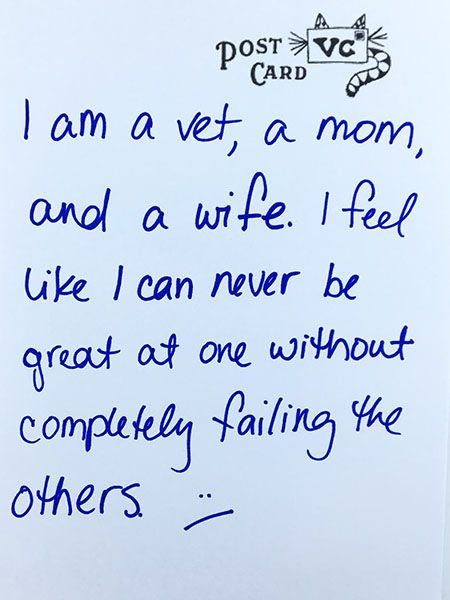 POST CARD VC
I am a vet, a mom,
and a wife. I feel
like I can never be
great at one without
completely failing the
others.